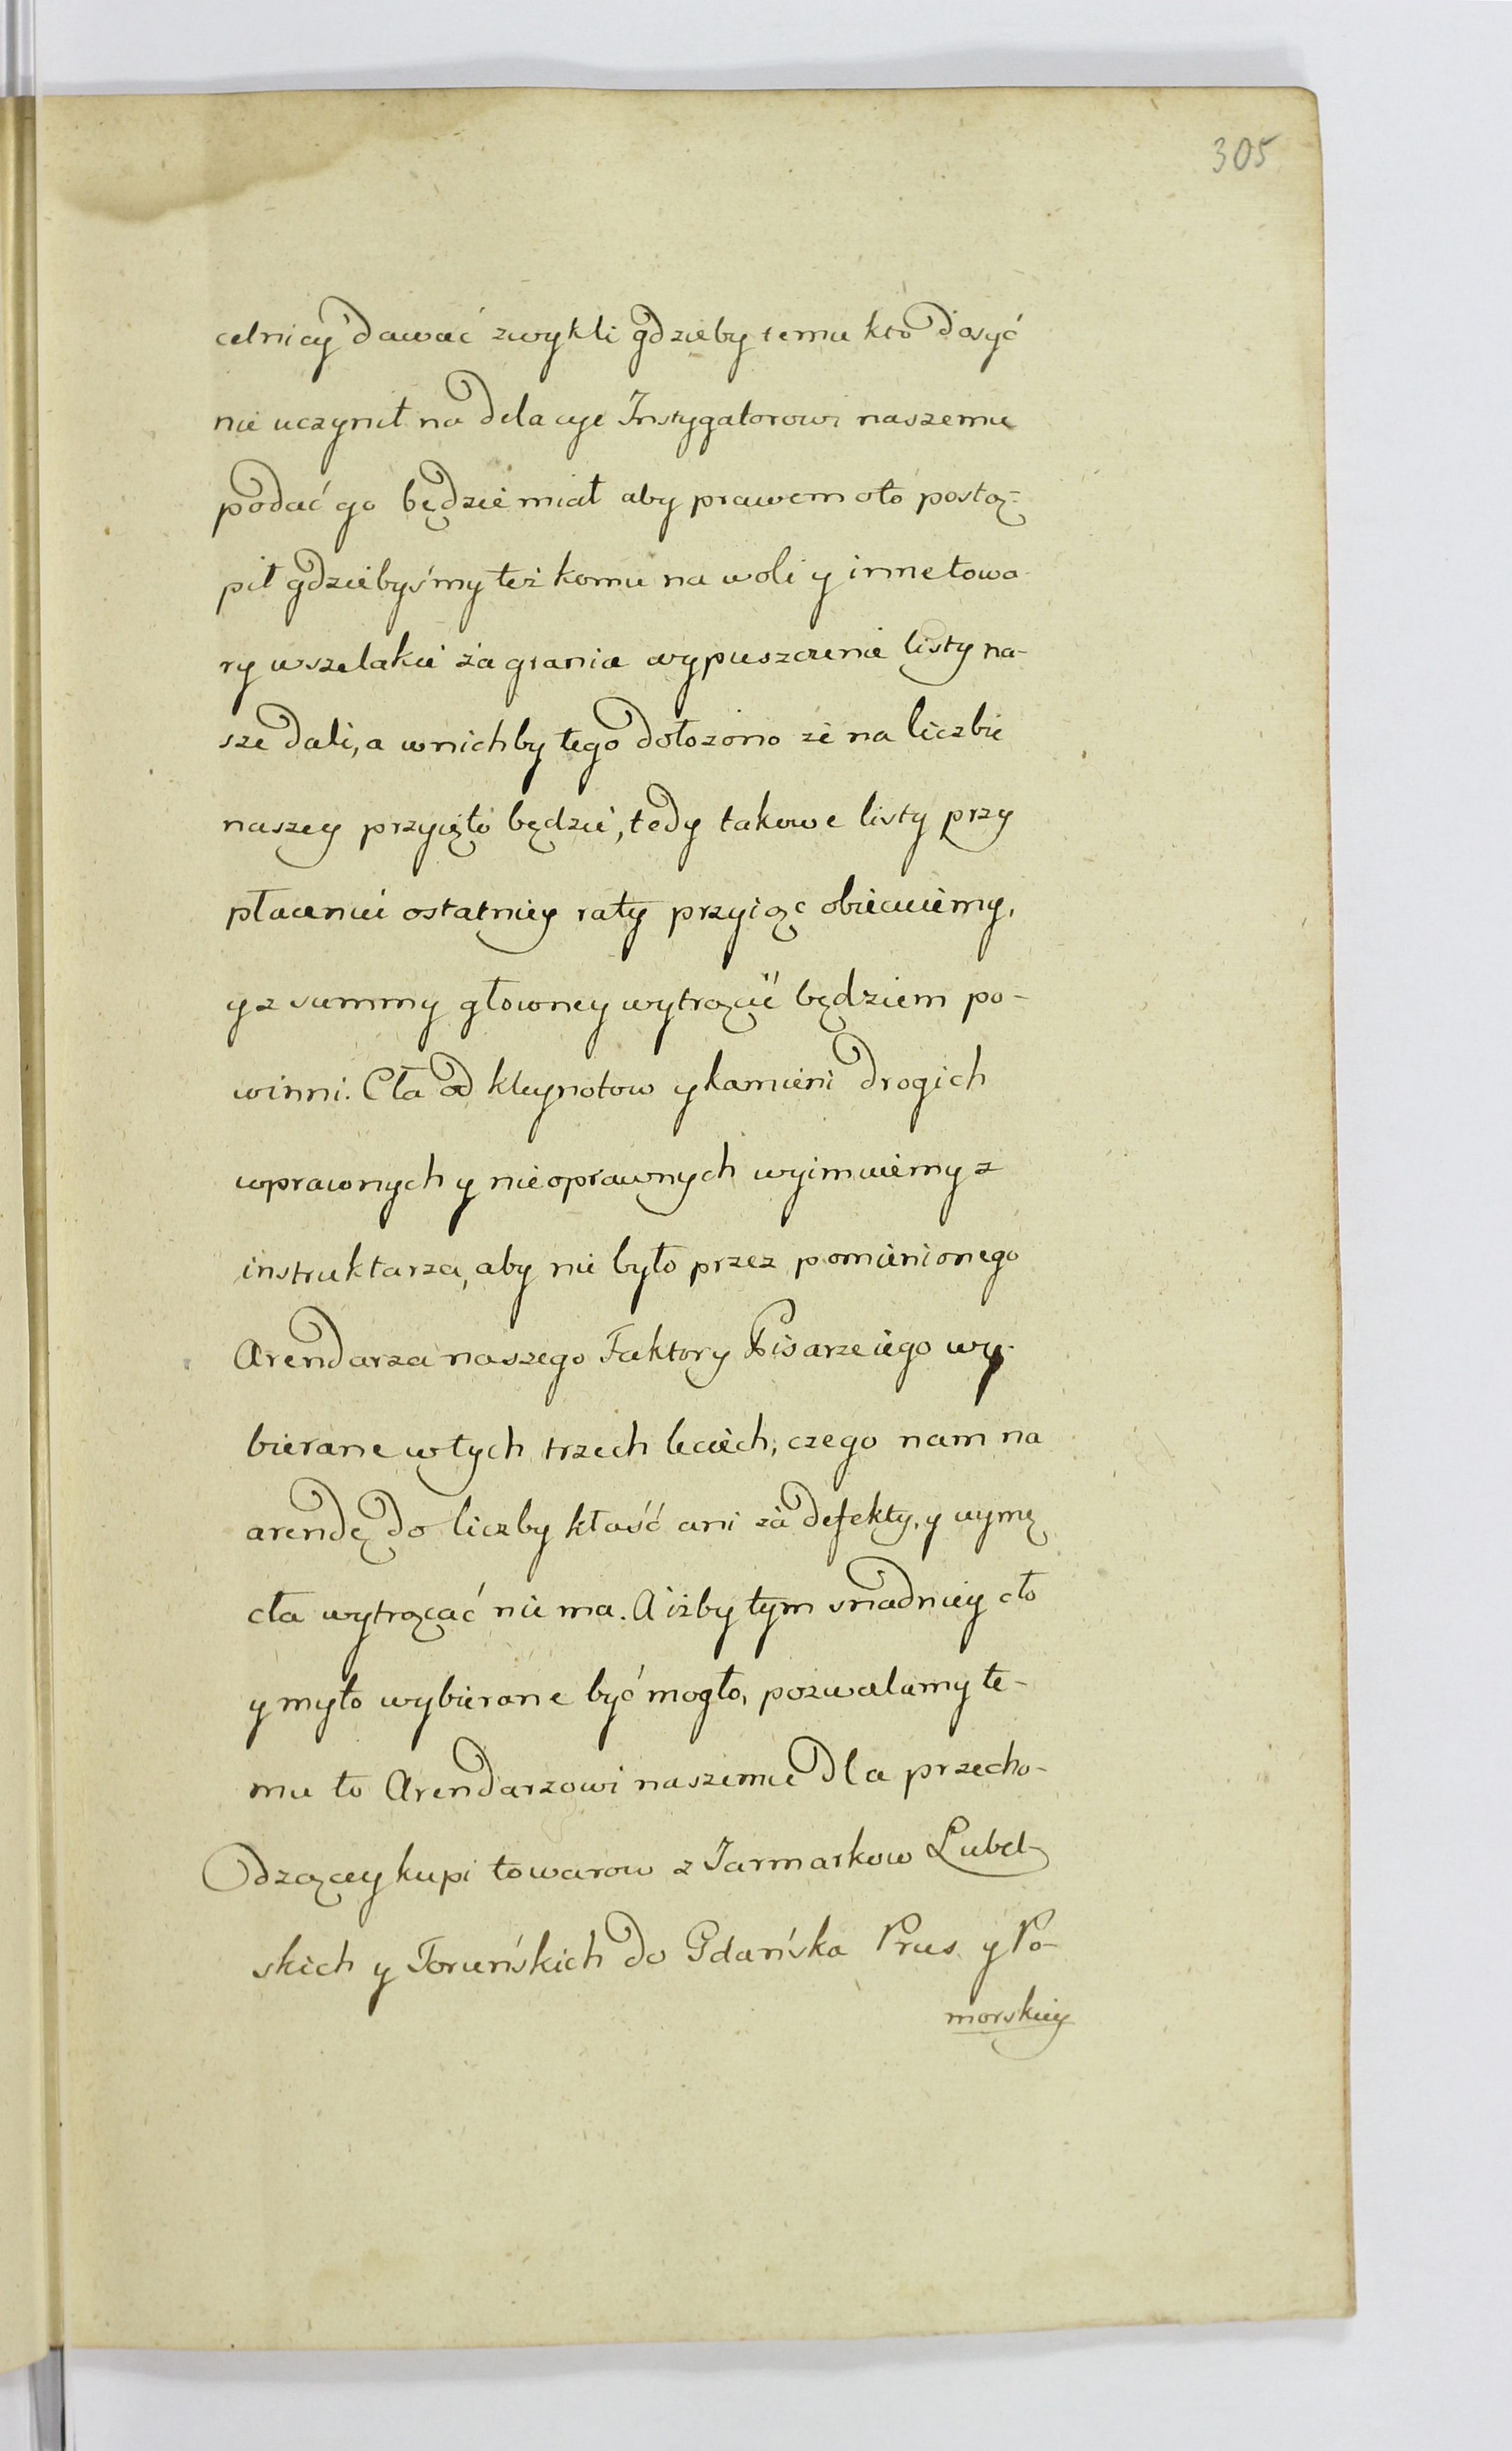 305
celnicy dawać zwykli gdzieby temu kto dosyć
nie uczynił na delacye Instygatorowi naszemu
podać go będzie miał aby prawem oto postą-
pił gdziebyśmy też komu na woli y inne towa-
ry wszelakie za granice wypuszczenie listy na-
sze dali, a wnichby tego dołożono że na liczbie
naszey przyięto będzie, tedy takowe listy przy
płaceniu ostatniey raty przyiąc obiecuiemy,
y z summy głowney wytrącić będziem po-
winni. Cła od kleynotow y kamieni drogich
wprawnych y nieoprawnych wyimuiemy z
instruktarza, aby nie było przez pomienionego
Arendarza naszego Faktory Pisarze iego wy-
bierane wtych trzech leciech, czego nam na
arendę do liczby kłaść ani za defekty, y wymę
cła wytrącać nie ma. A iżby tym snadniey cło
y myto wybierane być mogło, pozwalamy te-
mu to Arendarzowi naszemu dla przecho-
dzącey kupi towarow z Jarmarkow Lubel-
skich y Toruńskich do Gdańska Prus y Po-
morskiey